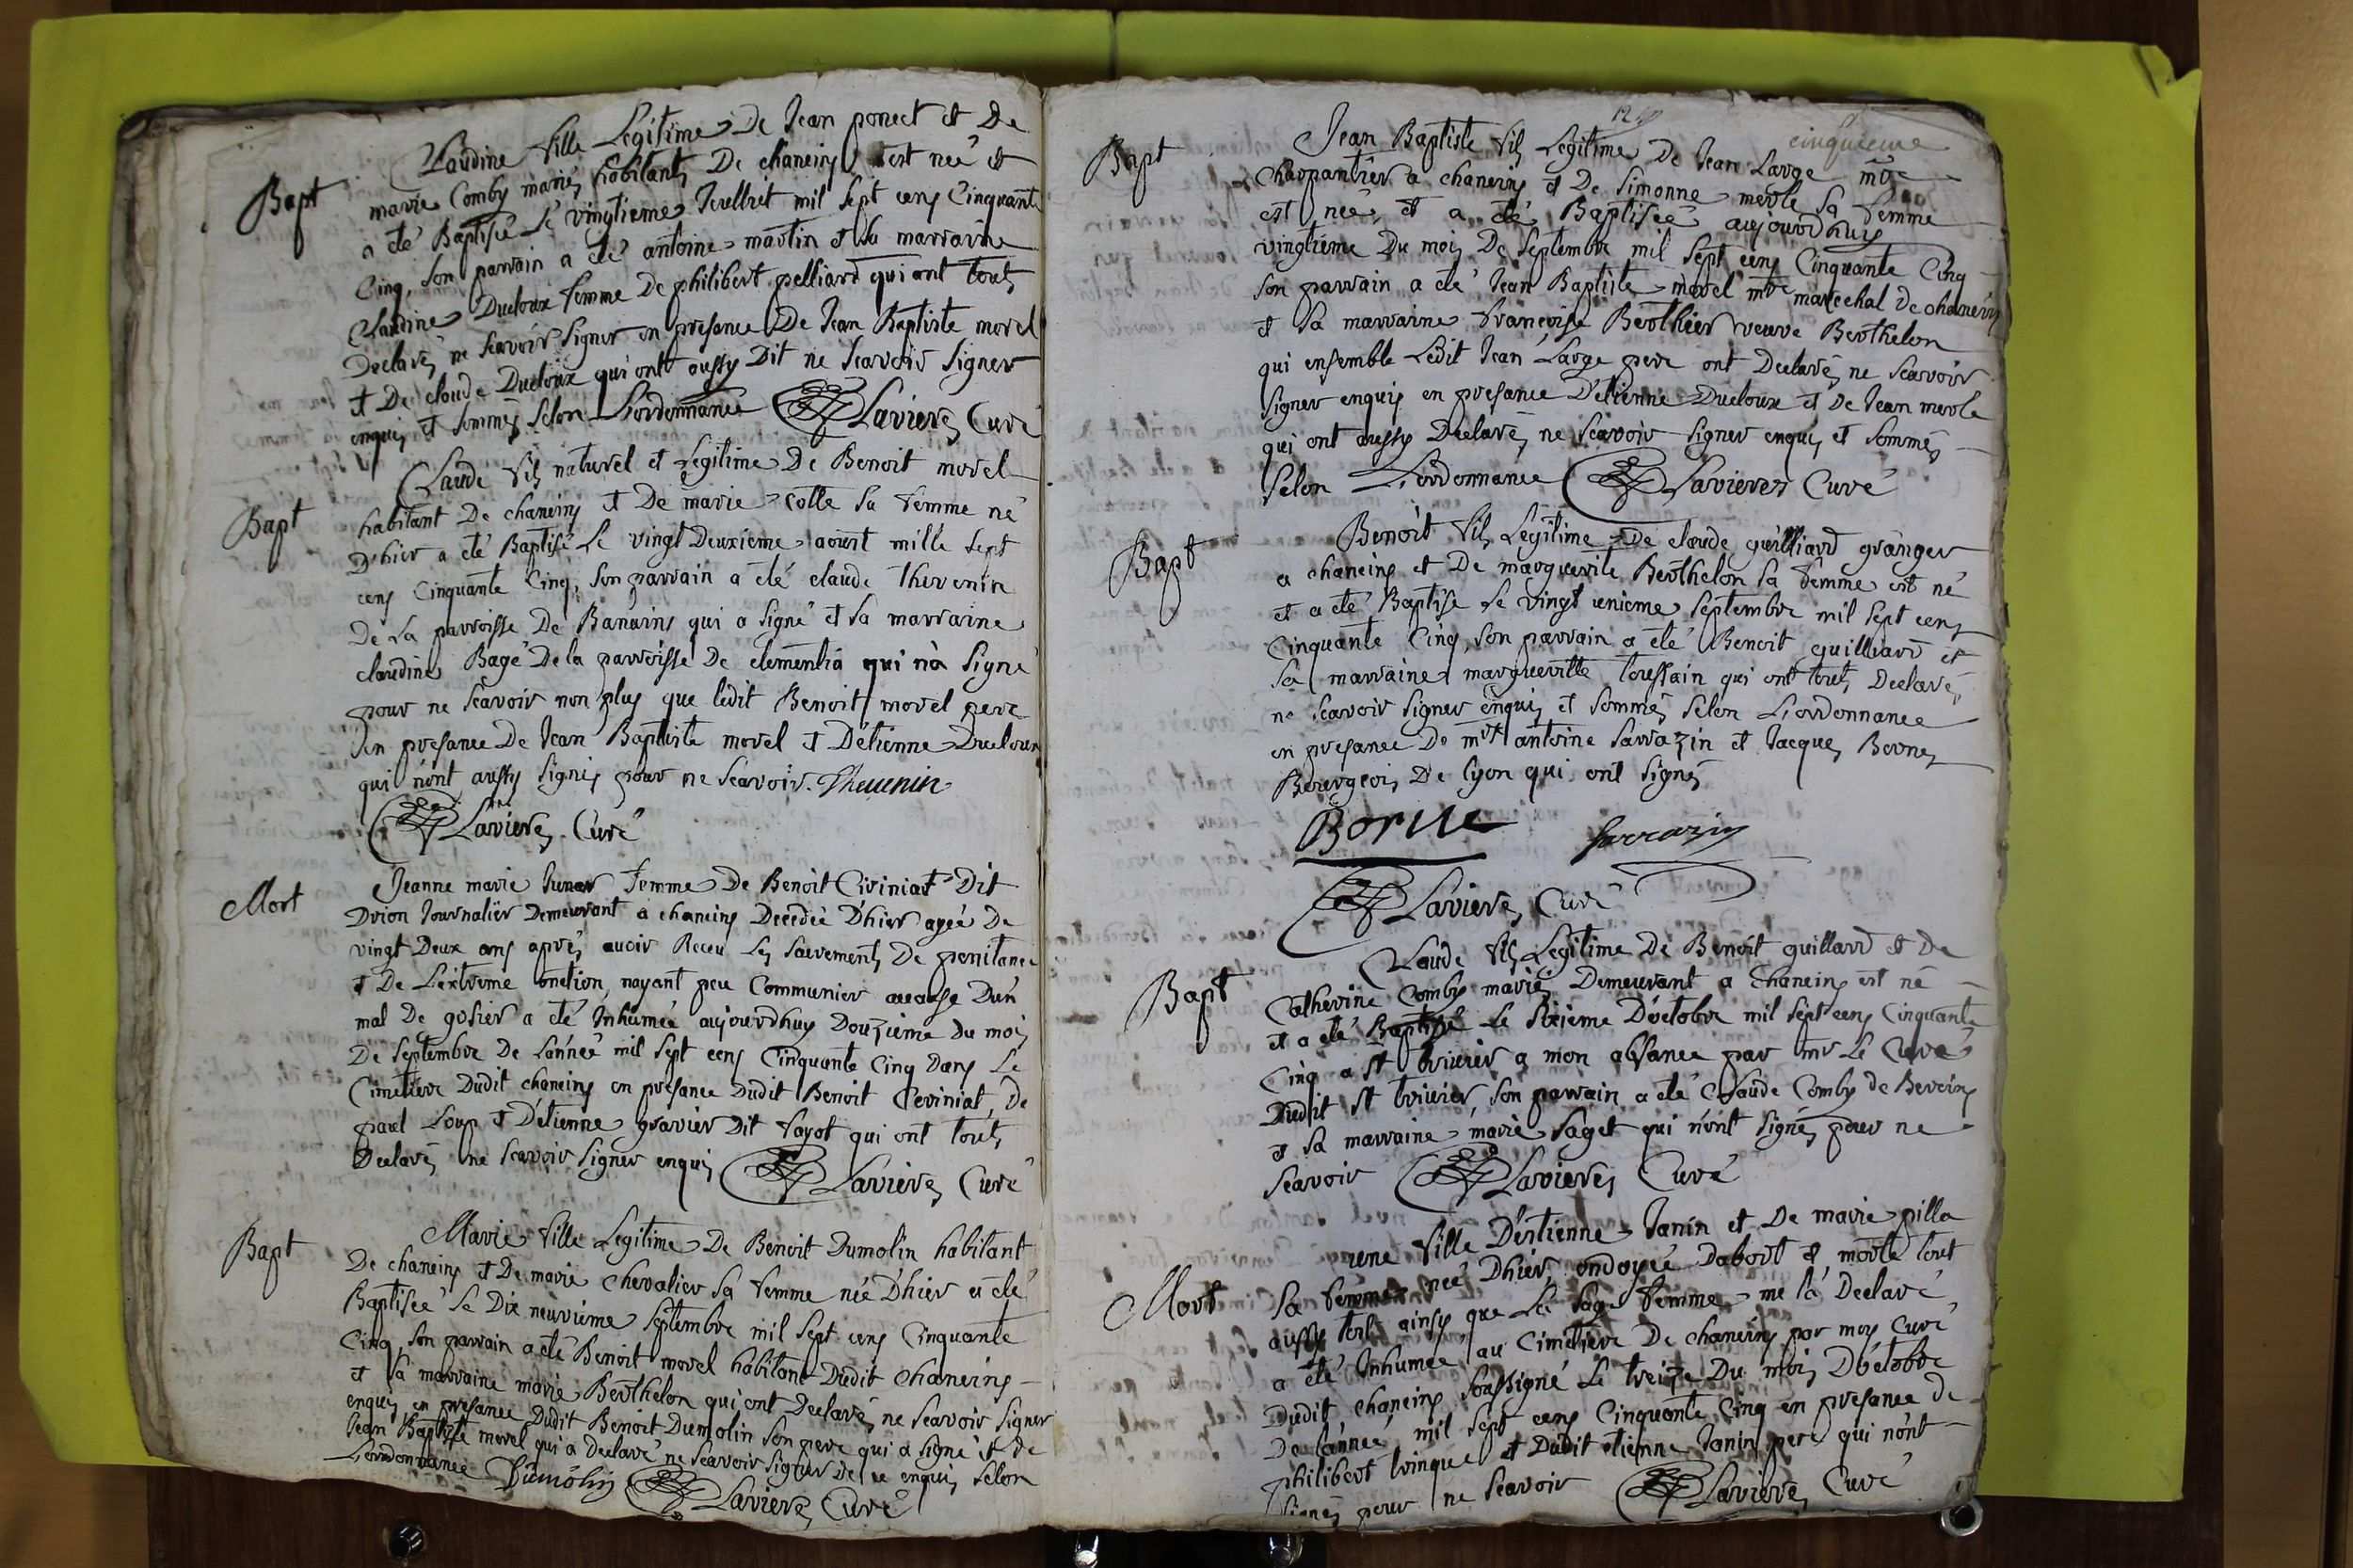 Bapt
Claudine fille Legitime De Jean ponect et De
marie Comby mariés habitants De chaneins est neé et
a eté Baptisée Le vingtieme Jeullret mil sept cens Cinquante
Cinq, son parrain a eté antoine martin et sa marraine
Claudine Ducloux femme De philibert pelliard qui ont touts
Declarés ne scavoir signer en presance De Jean Baptiste morel
et De claude Ducloux qui ont aussy Dit ne scavoir signer
enquis et sommés selon Lordonnance Lavieres Curé
Bapt
Claude fils naturel et Legitime De Benoit morel
habitant De chaneins et De marie cotte sa femme né
D'hier a eté Baptisé Le vingt Deuxieme aoust mille sept
cens Cinquante Cinq, son parrain a eté claude Thevenin
De La parroisse De Banains qui a signé et sa marraine
claudine Bagé De la parroisse De clementia qui n'a signé
pour ne scavoir non plus que ledit Benoit morel pere
en presance De Jean Baptiste morel et D'étienne Ducloux
qui n'ont aussy signés pour ne scavoir. Theuenin
Lavieres Curé
Mort
Jeanne marie Junar femme De Benoit Civiniat Dit
Drion Journalier Demeurant a chaneins Decedée D'hier agée De
vingt Deux ans aprés avoir Receu Les sacrements De penitance
et De L'extreme onction, nayant peu Communier acause D'un
mal De gosier a eté Inhumée aujourdhuy Douzieme du mois
De Septembre De L'anneé mil sept cens Cinquante Cinq Dans Le
Cimetiere Dudit chaneins en presance Dudit Benoit Ceviniat, De
paul Loup et D'étienne gravier Dit fayot qui ont touts
Declarés ne scavoir signer enquis Lavieres Curé
Bapt
Marie fille Legitime De Benoit Dumolin habitant
De chaneins et De marie chevalier sa femme née D'hier a eté
Baptiseé Le Dix neuvieme Septembre mil sept cens Cinquante
Cinq, son parrain a eté Benoit morel habitant Dudit chaneins
et sa marraine marie Berthelon qui ont Declarés ne scavoir signer
enquis en presance Dudit Benoit Dumolin son pere qui a signé et de
Jean Baptiste morel qui a Declaré ne scavoir signer de ce enquis selon
Lordonnance Dumolin Lavieres Curé
cinquieme
Bapt
Jean Baptiste fils Legitime De Jean Large mtre
Charpantier a chaneins et De Simonne merle sa femme
est neé, et a eté Baptiseé aujourdhuy
vingtieme Du mois De Septembre mil sept cens Cinquante Cinq
son parrain a eté Jean Baptiste morel mtre marechal de chaneins
et sa marraine Francoise Berthier veuve Berthelon
qui ensemble Ledit Jean Large pere ont Declarés ne scavoir
signer enquis en presance D'étienne Ducloux et De Jean merle
qui ont aussy Declarés ne scavoir signer enquis et sommés
selon L'ordonnance Lavieres Curé
Bapt
Benoit fils Legitime De claude guilliard granger
a chaneins et De marguerite Berthelon sa femme est né
et a eté Baptisé Le vingt unieme Septembre mil sept cens
Cinquante Cinq, son parrain a eté Benoit guilliard et
sa marraine margueritte toussain qui ont touts Declarés
ne scavoir signer enquis et sommés selon L'ordonnance
en presance De antoine Sarrazin et Jacques Bornes
Bourgeois De Lyon qui ont signés
Borne Sarrazin
Lavieres Curé
Bapt
Claude fils Legitime De Benoit guillard et De
Catherine Comby mariés Demeurant a Chaneins est né
et a eté Baptisé Le sixieme D'octobre mil sept cens Cinquante
Cinq a St trivier a mon absance par mr Le Curé
Dudit St trivier, son parrain a eté Claude Comby de Bereins
et sa marraine marie saget qui n'ont signés pour ne
scavoir Lavieres Curé
Mort
une fille D'estienne Janin et De marie pilla
sa femme neé D'hier ondoyeé Dabort et morte tout
aussy tost ainsy que La sage femme me l'a Declaré
a eté Inhumée au Cimetiere De chaneins par moy Curé
Dudit chaneins soussigné Le treize Du mois D'octobre
De l'année mil sept cens Cinquante Cinq en presance de
philibert trinque et Dudit etienne Janin pere qui n'ont
signés pour ne scavoir Lavieres Curé